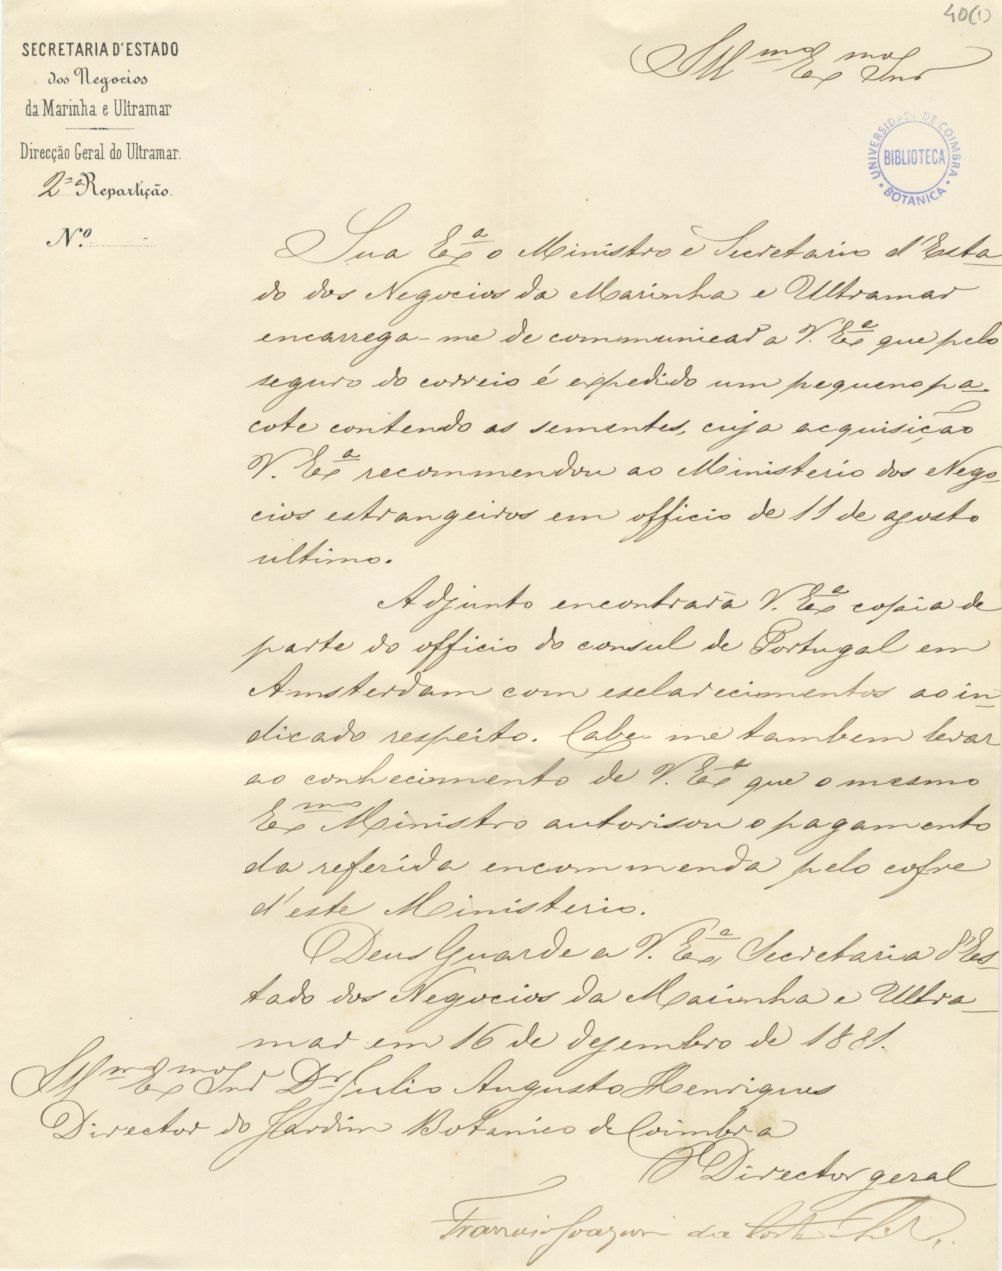 40(1)
SECRETARIA D'ESTADO
dos Negocios
da Marinha e Ultramar
Direcção Geral do Ultramar.
2ª Repartição.
N.º -
Illmo Exmo Snr
UNIVERSIDADE DE COIMBRA
BIBLIOTECA
BOTANICA
Sua Exª o Ministro e Secretario d'Esta-
do dos Negocios da Marinha e Ultramar
encarrega-me de communicar a V. Exª que pelo
seguro do correio é expedido um pequeno pa-
cote contendo as sementes, cuja acquisição
V. Exª recommendou ao Ministerio dos Nego-
cios estrangeiros em officio de 11 de agosto
ultimo.
Adjunto encontrará V. Exª copia de
parte do officio do consul de Portugal em
Amsterdam com esclarecimentos ao in-
dicado respeito. Cabe-me tambem levar
ao conhecimento de V. Exª que o mesmo
Exmo Ministro autorisou o pagamento
da referida encommenda pelo cofre
d'este Ministerio.
Deus Guarde a V. Exª, Secretaria d'Es-
tado dos Negocios da Marinha e Ultra-
mar em 16 de dezembro de 1881.
Illmo Exmo Snr Dr Julio Augusto Henriques
Director do Jardim Botanico de Coimbra
O Director geral
Francisco Joaquim da Costa e Silva.